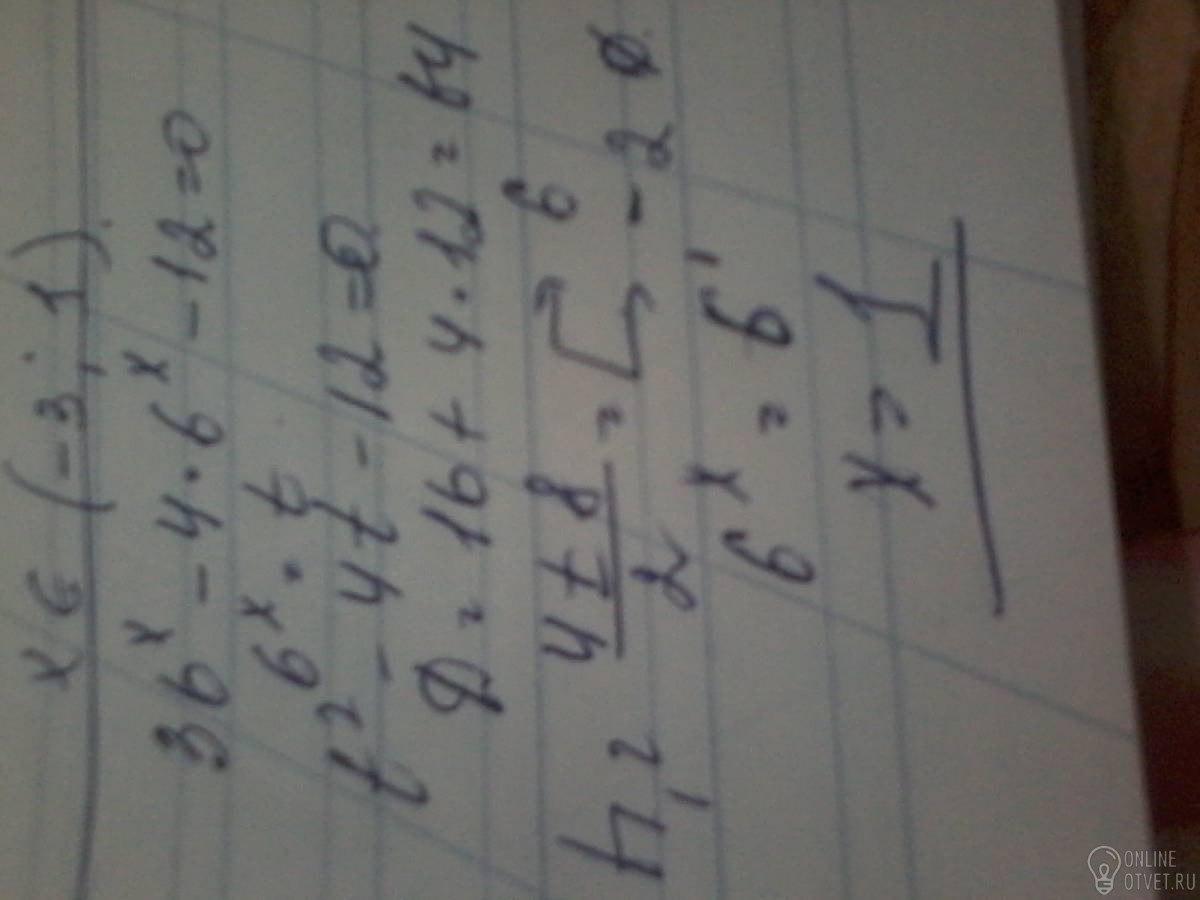 x ∈ (-3; 1)
36^x - 4 · 6^x - 12 = 0
6^x = t
t² - 4t - 12 = 0
D = 16 + 4 · 12 = 64
t₁,₂ = (4 ± 8)/2 = [ 6
-2 ∅
6^x = 6^1
x = 1
ONLINE
OTVET.RU